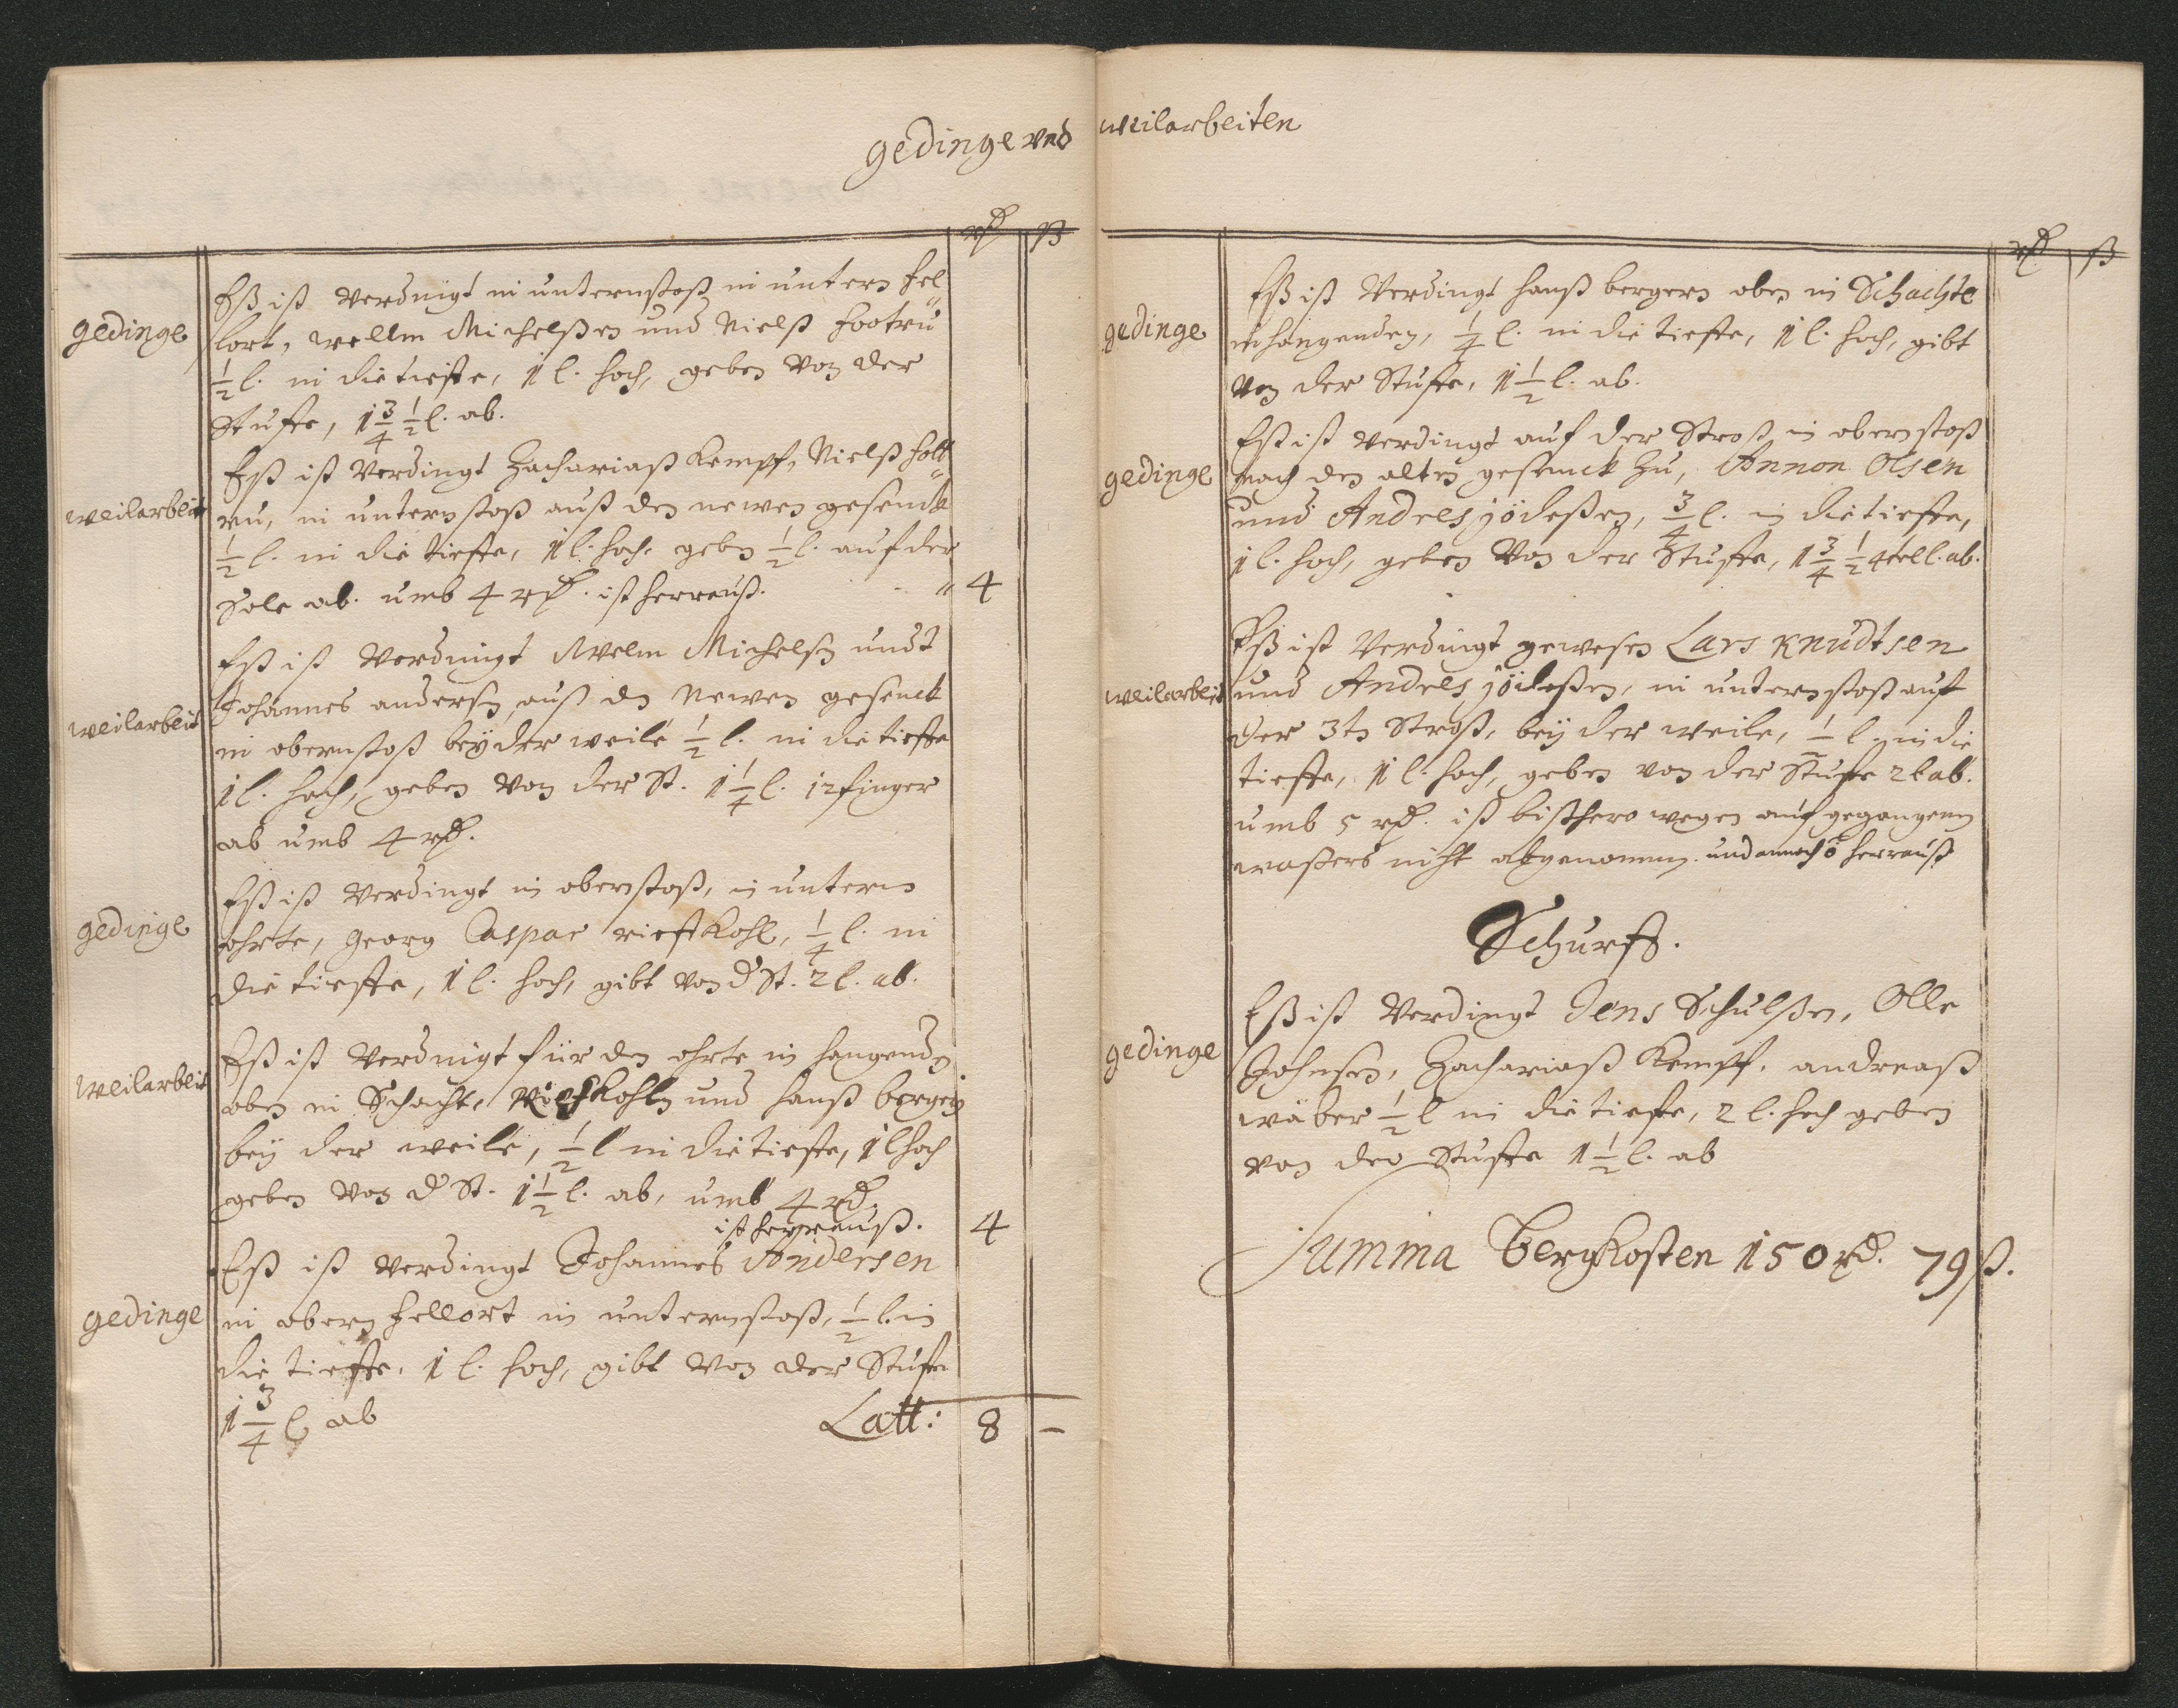 gedinge vnd weilarbeiten
rd ß
gedinge
Eß ist verdingt in unternstoß in untern fel
lort, wellm Michelßen und Nielß footru
1/2 l. in die tieffe, 1 l. hoch, geben von der
Stuffe, 1 3/4 1/2 l. ab.
weilarbeit
Eß ist verdingt Zachariaß Kempff, Nielß fott
ru, in unternstoß auß den newen gesenck
1/2 l. in die tieffe, 1 l. hoch, geben 1/2 l. auf der
Sole ab. umb 4 rd. ist herrauß. " 4
weilarbeit
Eß ist verdingt Welm Michelsen undt
Johannes andersen, auß den Newen gesenck
in obernstoß bey der weile 1/2 l. in die tieffe
1 l. hoch, geben von der St. 1 1/4 l. 12 finger
ab umb 4 rd.
gedinge
Eß ist verdingt in obernstoß, in untern
ohrte, Georg Caspar rieffkohl, 1/4 l. in
die tieffe, 1 l. hoch, gibt von d St. 2 l. ab.
weilarbeit
Eß ist verdingt für den ohrte in hangenden
oben in Schacht, Riefkohln und Hanß bergern
bey der weile, 1/2 l in die tieffe, 1 l hoch
geben von d St. 1 1/2 l. ab, umb 4 rd.
ist herrauß. 4
gedinge
Eß ist verdingt Johannes Andersen
in obern fellort in unternstoß, 1/2 l. in
die tieffe, 1 l. hoch, gibt von der Stuffe
1 3/4 l ab Latt: 8 –
rd ß
gedinge
Eß ist Verdingt Hanß bergern oben in Schachte
in hangenden, 1/4 l. in die tieffe, 1 l. hoch, gibt
von der Stuffe, 1 1/2 l. ab.
gedinge
Eß ist verdingt auf der Stroß in obernstoß
nach den alten gesenck zu, Annon Olsen
und Andres jödeßen, 3/4 l. in die tieffe,
1 l. hoch, geben von der Stuffe, 1 3/4 1/2 4tel l. ab.
weilarbeit
Eß ist Verdingt gewesen Lars Knudtsen
und Andres jödeßen, in unternstoß auf
der 3tn Stroß, bey der weile, 1/2 l. in die
tieffe, 1 l. hoch, geben von der Stuffe 2 l ab.
umb 5 rd. ist bißhero wegen aufgegangenen
waßers nicht abgenommen. und annoch herrauß
Schurff.
gedinge
Eß ist Verdingt Jens Schulßen, Olle
Johnsen, Zachariaß Kempff, andreaß
wäber 1/2 l in die tieffe, 2 l. hoch geben
von der Stuffe 1 1/2 l. ab
Summa bergkosten 150 rd. 79 ß.